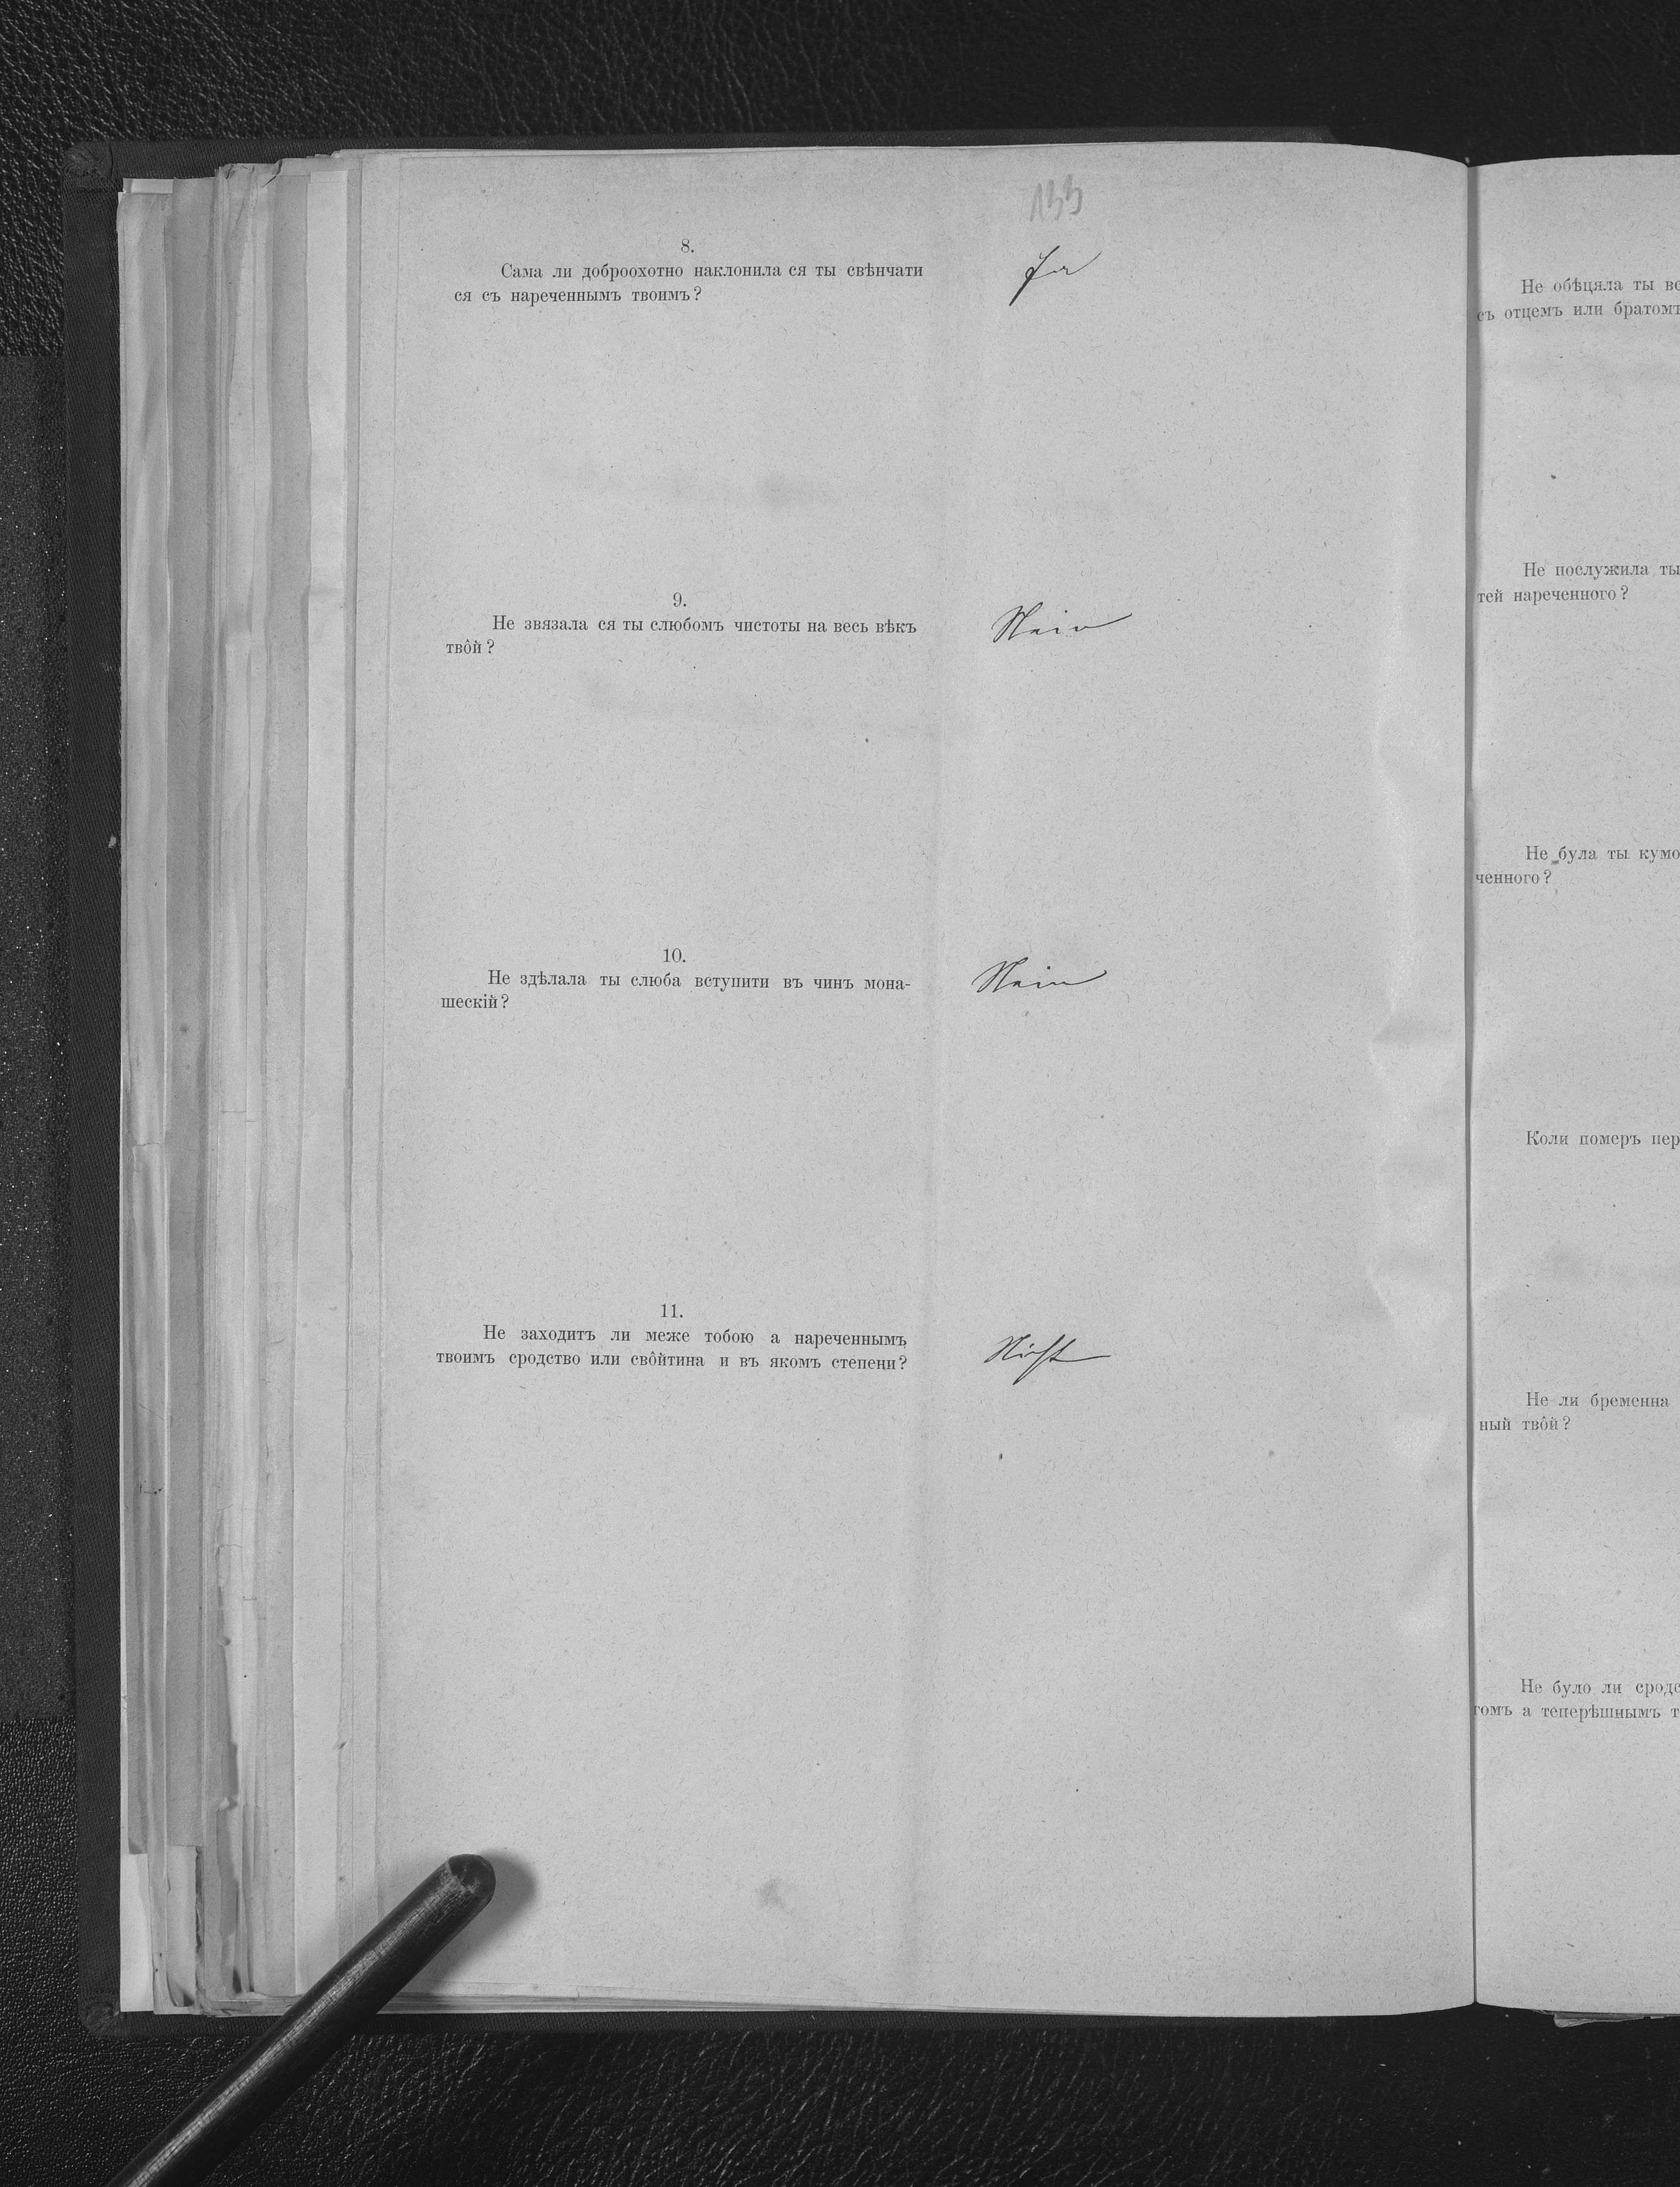 133
8.
Сама ли доброохотно наклонила ся ты свѣнчати
ся съ нареченнымъ твоимъ?
Ja
9.
Не звязала ся ты слюбомъ чистоты на весь вѣкъ
твôй?
Nein
10.
Не здѣлала ты слюба вступити въ чинъ мона-
шескій?
Nein
11.
Не заходитъ ли меже тобою а нареченнымъ
твоимъ сродство или свôйтина и въ якомъ степени?
Nicht
Не обѣцяла ты
съ отцемъ или братомъ
Не послужила ты
тей нареченного?
Не була ты кумо
ченного?
Коли померъ пер
Не ли бременна
ный твôй?
Не було ли сродс
томъ а теперѣшнымъ т